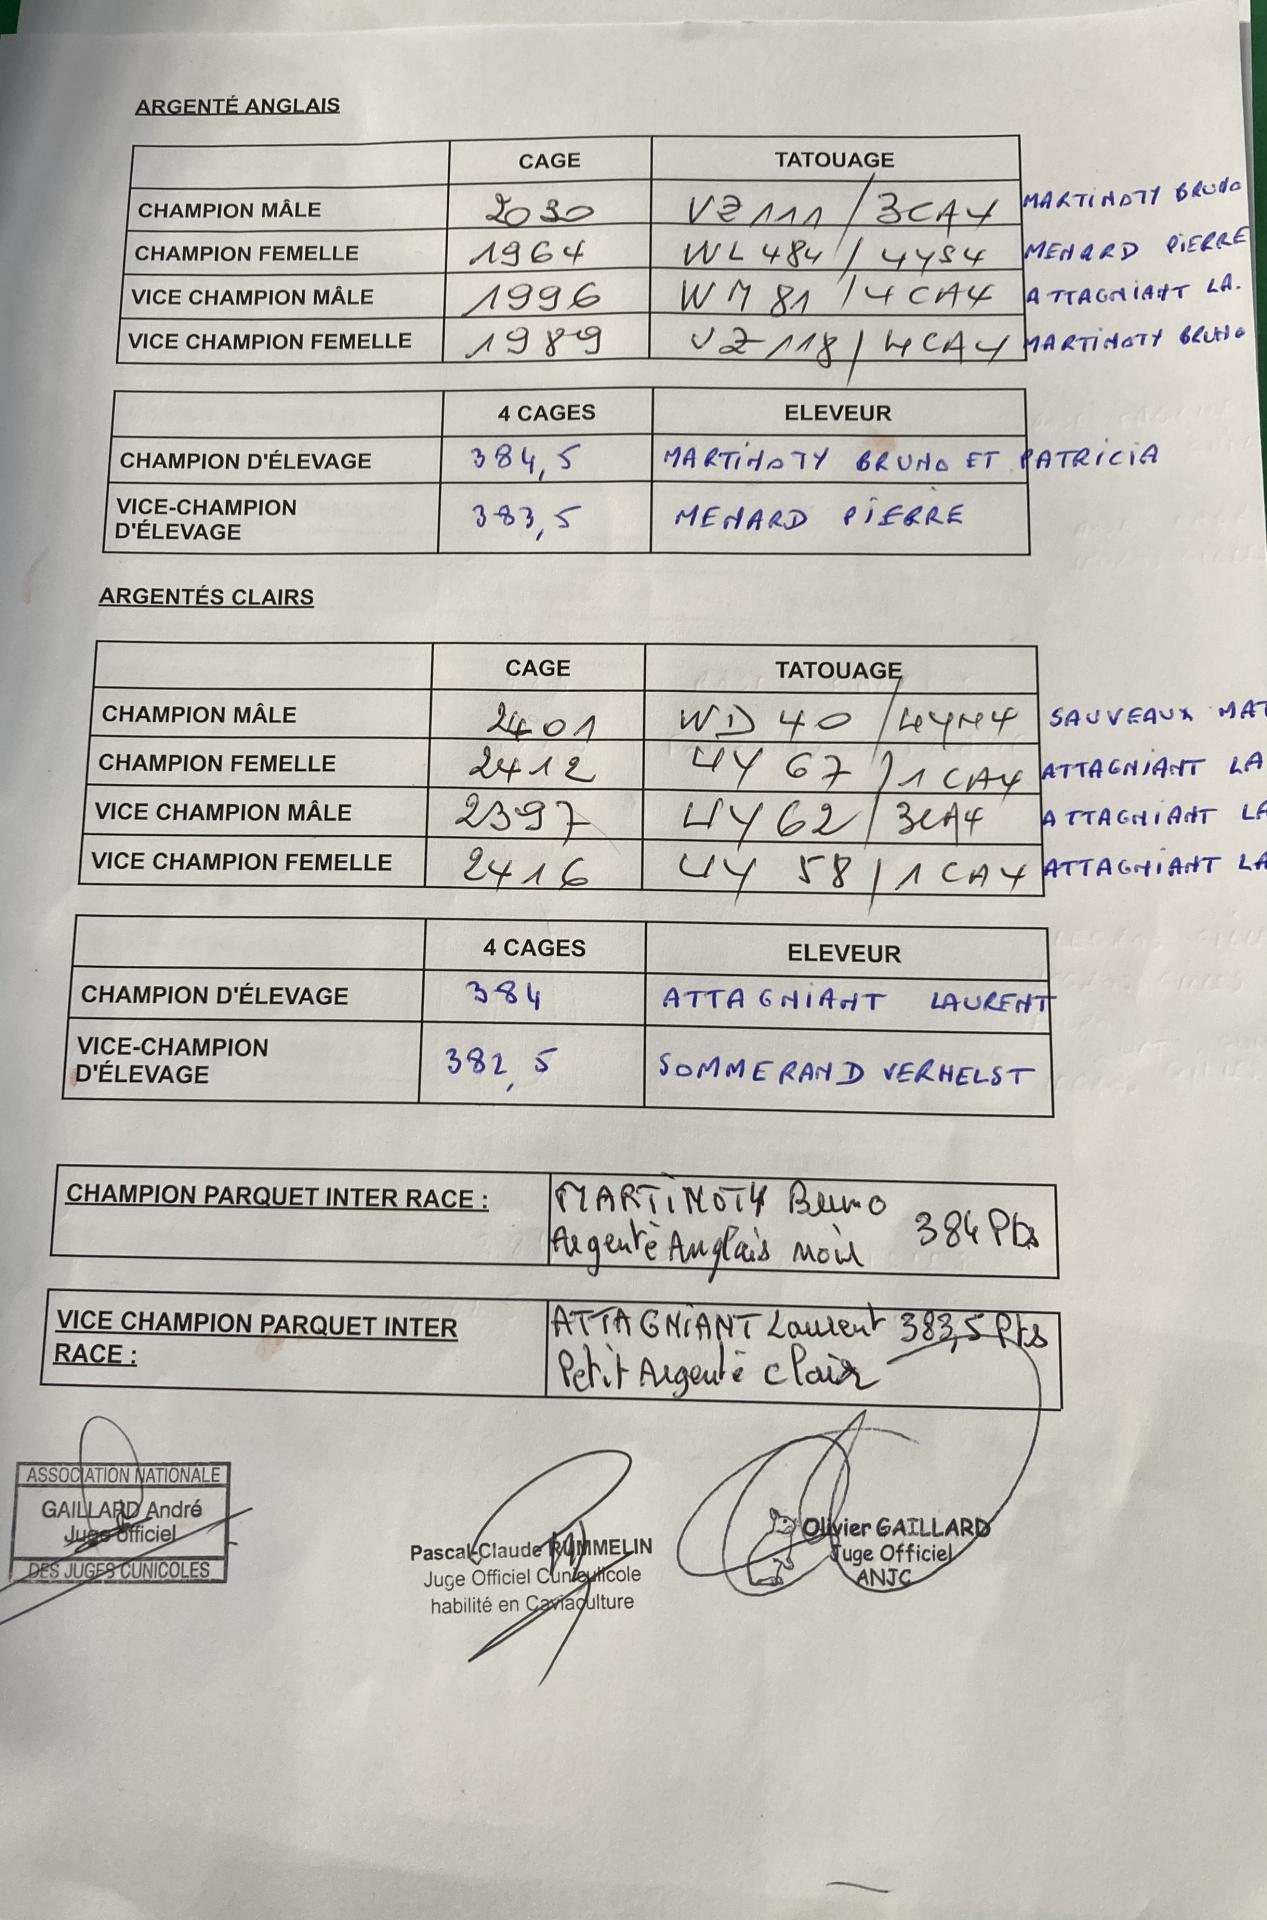 ARGENTÉ ANGLAIS
CAGE TATOUAGE
CHAMPION MÂLE 2030 VZ 111 / 3CA4 MARTINOTY BRUNO
CHAMPION FEMELLE 1964 WL 484 / 4YS4 MENARD PIERRE
VICE CHAMPION MÂLE 1996 WM 81 / 4CA4 ATTAGNIANT LA.
VICE CHAMPION FEMELLE 1989 VZ 118 / 4CA4 MARTINOTY BRUNO
4 CAGES ELEVEUR
CHAMPION D'ÉLEVAGE 384,5 MARTINOTY BRUNO ET PATRICIA
VICE-CHAMPION
D'ÉLEVAGE 383,5 MENARD PIERRE
ARGENTÉS CLAIRS
CAGE TATOUAGE
CHAMPION MÂLE 2401 WD 40 / SAUVEAUX MAT
CHAMPION FEMELLE 2412 4Y 67 / 1CA4 ATTAGNIANT LA
VICE CHAMPION MÂLE 2397 4Y 62 / 3CA4 ATTAGNIANT LA
VICE CHAMPION FEMELLE 2416 4Y 58 / 1CA4 ATTAGNIANT LA
4 CAGES ELEVEUR
CHAMPION D'ÉLEVAGE 384 ATTAGNIANT LAURENT
VICE-CHAMPION
D'ÉLEVAGE 382,5 SOMMERAND VERHELST
CHAMPION PARQUET INTER RACE : MARTINOTY Bruno
Argenté Anglais noir 384 Pts
VICE CHAMPION PARQUET INTER
RACE : ATTAGNIANT Laurent 383,5 Pts
Petit Argenté clair
ASSOCIATION NATIONALE
GAILLARD André
Juge officiel
DES JUGES CUNICOLES
Pascal-Claude RUMMELIN
Juge Officiel Cuniculicole
habilité en Caviaculture
Olivier GAILLARD
Juge Officiel
ANJC